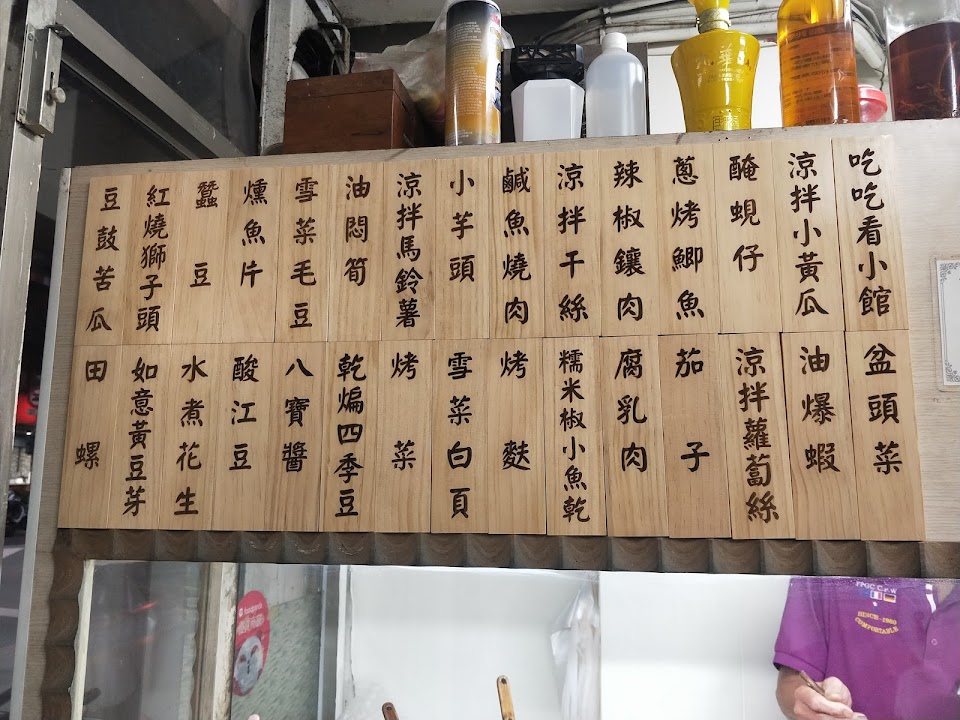 吃吃看小館
涼拌小黃瓜
醃蜆仔
蔥烤鯽魚
辣椒鑲肉
涼拌干絲
鹹魚燒肉
小芋頭
涼拌馬鈴薯
油悶筍
雪菜毛豆
燻魚片
蠶豆
紅燒獅子頭
豆鼓苦瓜
盆頭菜
油爆蝦
涼拌蘿蔔絲
茄子
腐乳肉
糯米椒小魚乾
烤麩
雪菜白頁
烤菜
乾煸四季豆
八寶醬
酸江豆
水煮花生
如意黃豆芽
田螺
SINCE 1960
COMFORTABLE